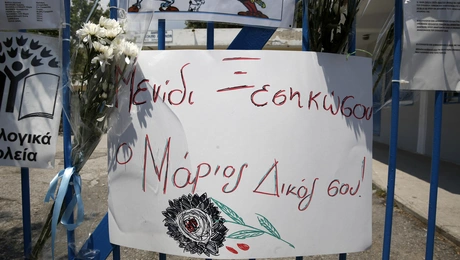 Μενίδι Ξεσηκώσου
ο Μάριος Δικός σου!
λογικά
ολεία